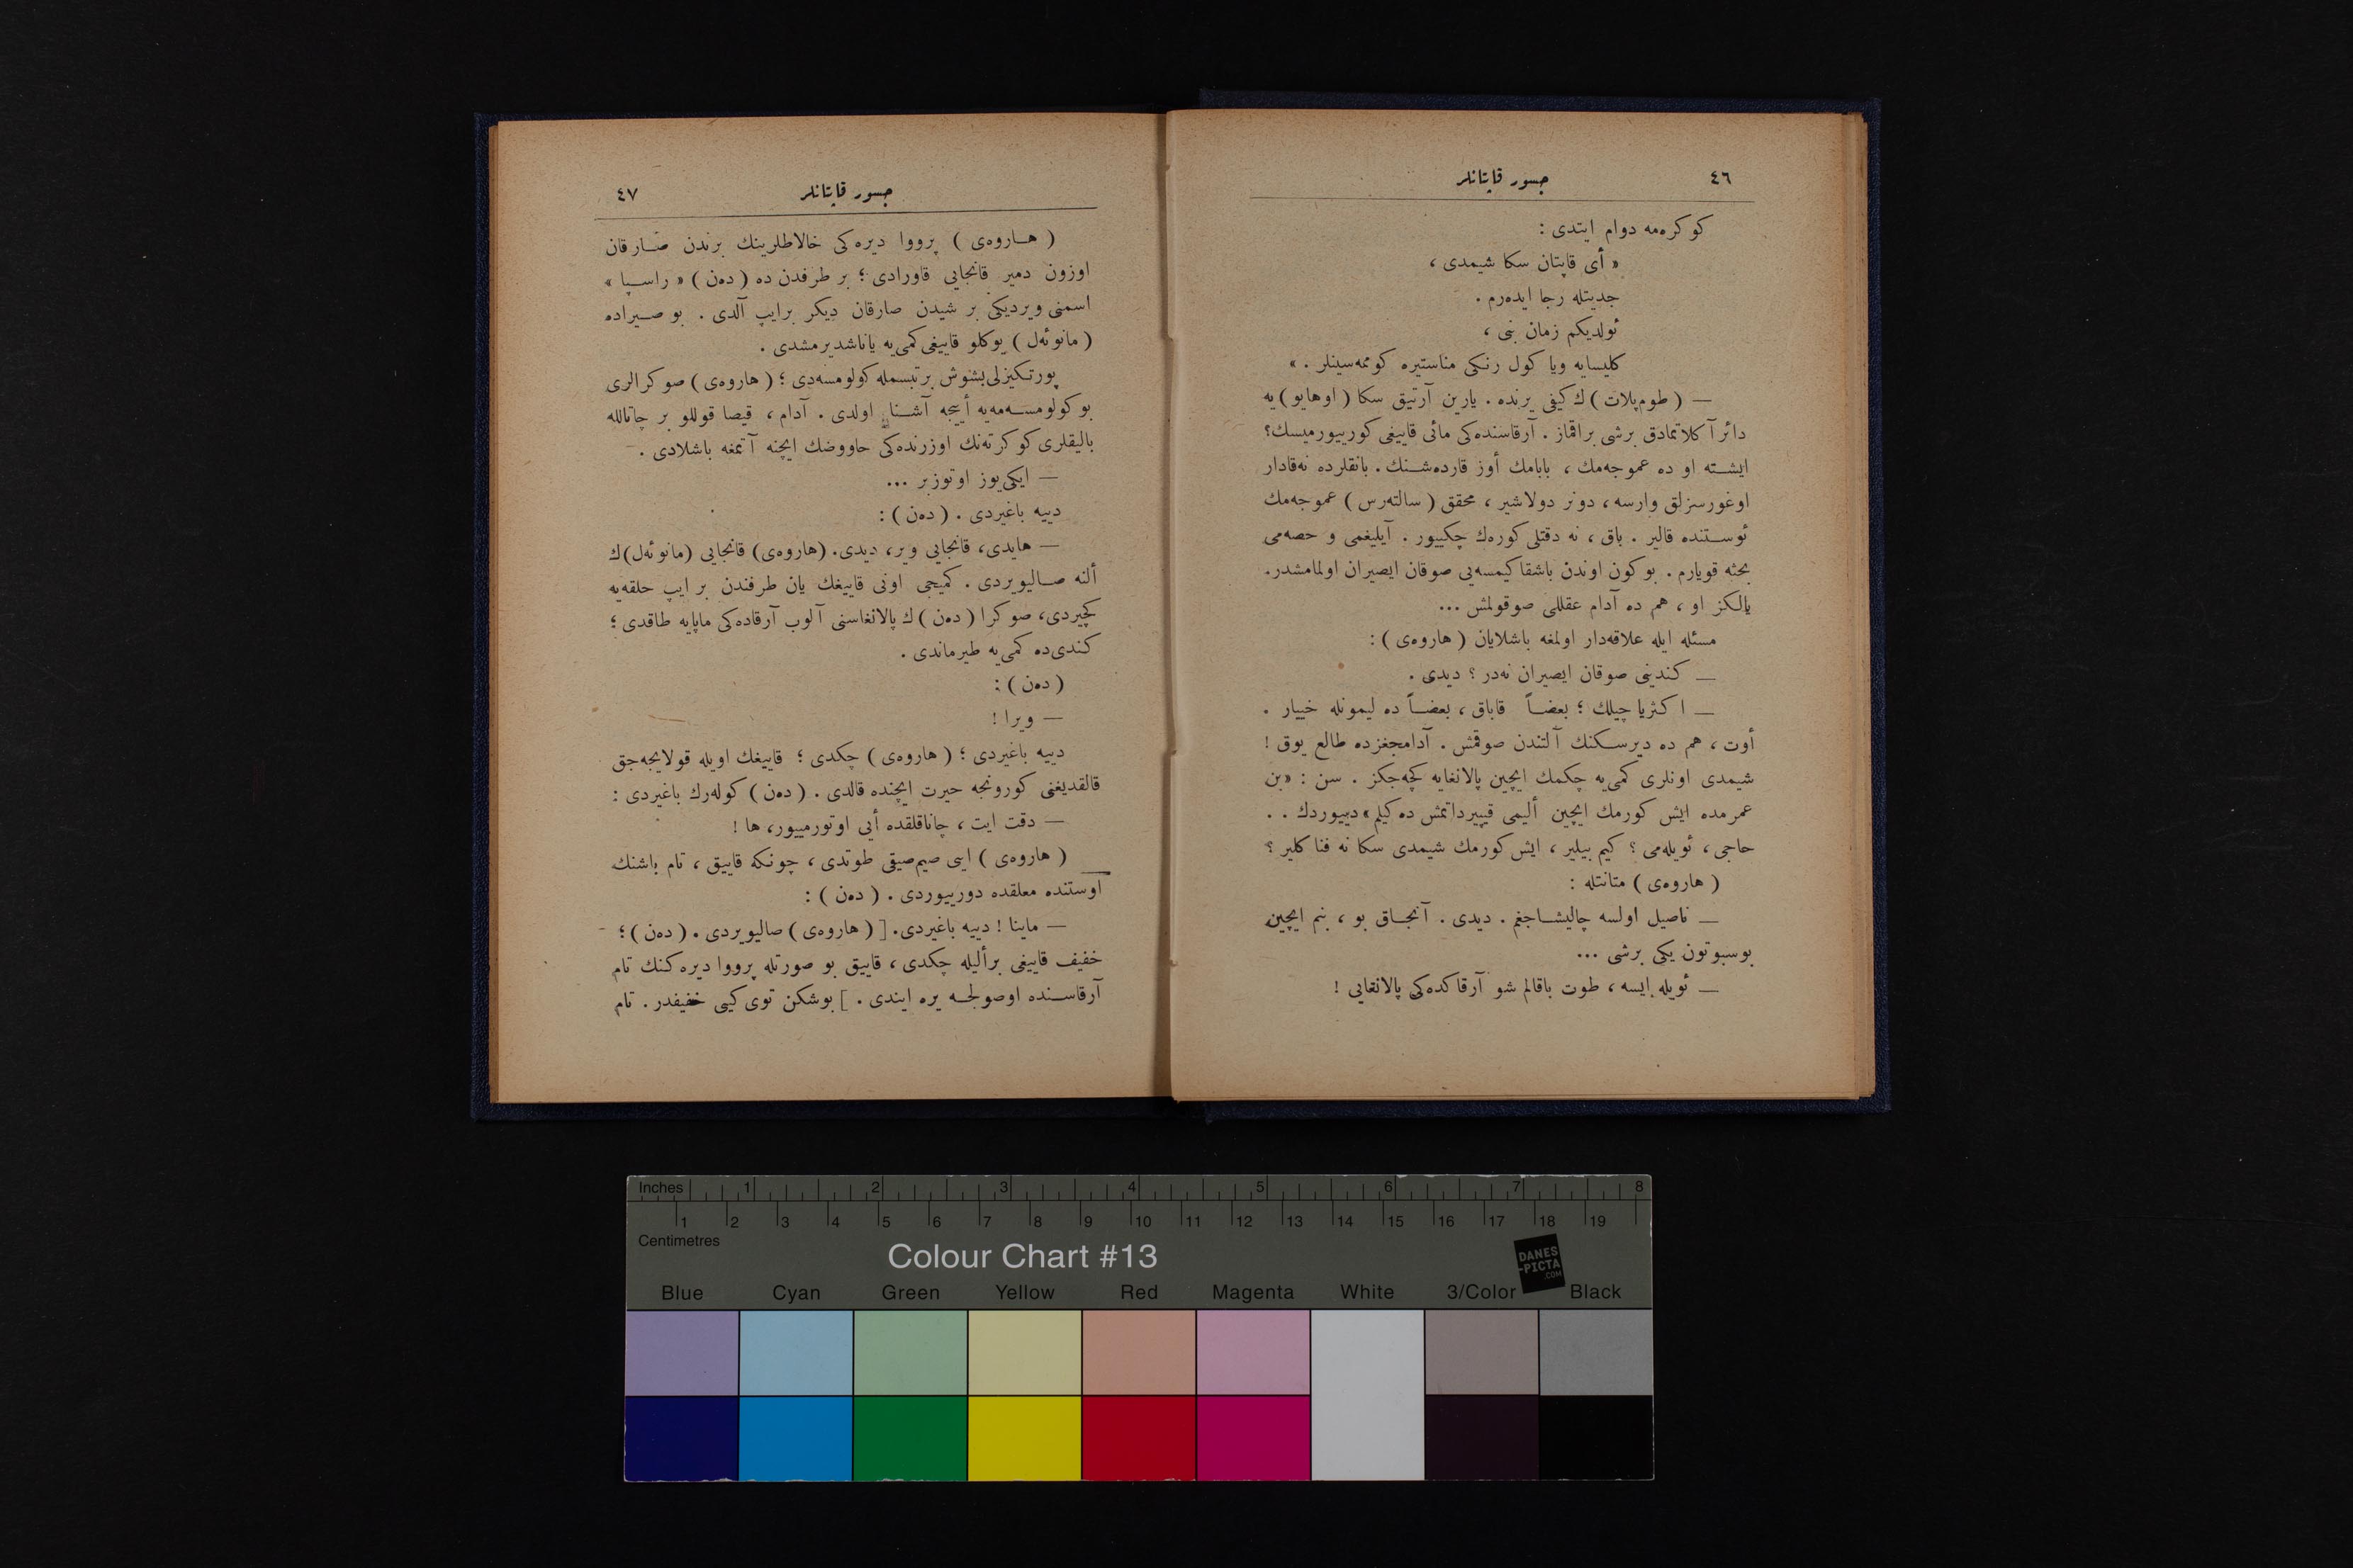 ٤٦
جسور قاپتانلر
كوكره‌مه دوام ايتدى :
« أى قاپتان سكا شيمدى ،
جديتله رجا ايده‌رم .
ئولديكم زمان بنى ،
كليسايه ويا كول رنكى مناستيره كوممه‌سينلر . »
— ( طوم‌پلات ) ك كيفى يرنده . يارين آرتيق سكا ( اوهايو ) يه
دائر آكلاتمادق برشى براقماز . آرقاسنده‌كى مائى قاييغى كورييورميسك؟
ايشته او ده عموجه‌مك ، بابامك أوز قارده‌شنك . بانقلرده نه‌قادار
اوغورسزلق وارسه ، دونر دولاشير ، محقق ( سالته‌رس ) عموجه‌مك
ئوستنده قالير . باق ، نه دقتلى كوره‌ك چكييور . آيليغمى و حصه‌مى
بحثه قويارم . بوكون اوندن باشقا كيمسه‌يى صوقان ايصيران اولمامشدر.
يالكز او ، هم ده آدام عقللى صوقولمش ...
مسئله ايله علاقه‌دار اولمغه باشلايان ( هاروه‌ى ) :
— كندينى صوقان ايصيران نه‌در ؟ ديدى .
— اكثريا چيلك ؛ بعضاً قاباق ، بعضاً ده ليمونله خييار .
أوت ، هم ده ديرسكنك آلتندن صوقمش . آدامجغزده طالع يوق !
شيمدى اونلرى كمى‌يه چكمك ايچين پالانغايه كچه‌جكز . سن : «بن
عمرمده ايش كورمك ايچين أليمى قيپيرداتمش ده‌كيلم» دييوردك . .
حاجى ، ئويله‌مى ؟ كيم بيلير ، ايش كورمك شيمدى سكا نه فنا كلير ؟
( هاروه‌ى ) متانتله :
— ناصيل اولسه چاليشاجغم . ديدى . آنجاق بو ، بنم ايچين
بوسبوتون يكى برشى ...
— ئويله ايسه ، طوت باقالم شو آرقاكده‌كى پالانغايى !
جسور قاپتانلر
٤٧
( هاروه‌ى ) پرووا ديره‌كى خالاطلرينك برندن صارقان
اوزون دمير قانجايى قاورادى ؛ بر طرفدن ده ( ده‌ن ) « راسپا »
اسمنى ويرديكى بر شيدن صارقان ديكر برايپ آلدى . بو صيراده
( مانوئه‌ل ) يوكلو قاييغى كمى‌يه ياناشديرمشدى .
پورتكيزلى بشوش برتبسمله كولومسه‌دى ؛ ( هاروه‌ى ) صوكرالرى
بو كولومسه‌مه‌يه أييجه آشنا اولدى . آدام ، قيصا قوللو بر چاتالله
باليقلرى كوكرته‌نك اوزرنده‌كى حاووضك ايچنه آتمغه باشلادى .
— ايكى‌يوز اوتوزبر ...
دييه باغيردى . ( ده‌ن ) :
— هايدى، قانجايى وير، ديدى. (هاروه‌ى) قانجايى (مانوئه‌ل)ك
ألنه صاليويردى . كميجى اونى قاييغك يان طرفندن بر ايپ حلقه‌يه
كچيردى، صوكرا ( ده‌ن ) ك پالانغاسنى آلوب آرقاده‌كى ماپايه طاقدى ؛
كندى‌ده كمى‌يه طيرماندى .
( ده‌ن ) :
— ويرا !
دييه باغيردى ؛ ( هاروه‌ى ) چكدى ؛ قاييغك اويله قولايجه‌جق
قالقديغنى كورونجه حيرت ايچنده قالدى . ( ده‌ن ) كوله‌رك باغيردى :
— دقت ايت ، چاناقلقده أيى اوتورمييور، ها !
( هاروه‌ى ) ايپى صيم‌صيقى طوتدى ، چونكه قاييق ، تام باشنك
اوستنده معلقده دورييوردى . ( ده‌ن ) :
— ماينا ! دييه باغيردى. [ ( هاروه‌ى ) صاليويردى . ( ده‌ن ) ؛
خفيف قاييغى برأليله چكدى ، قاييق بو صورتله پرووا ديره‌كنك تام
آرقاسنده اوصولجه يره ايندى . ] بوشكن توى كيبى خفيفدر . تام
Inches 1 2 3 4 5 6 7 8
1 2 3 4 5 6 7 8 9 10 11 12 13 14 15 16 17 18 19
Centimetres
Colour Chart #13
DANES
-PICTA
.COM
Blue Cyan Green Yellow Red Magenta White 3/Color Black